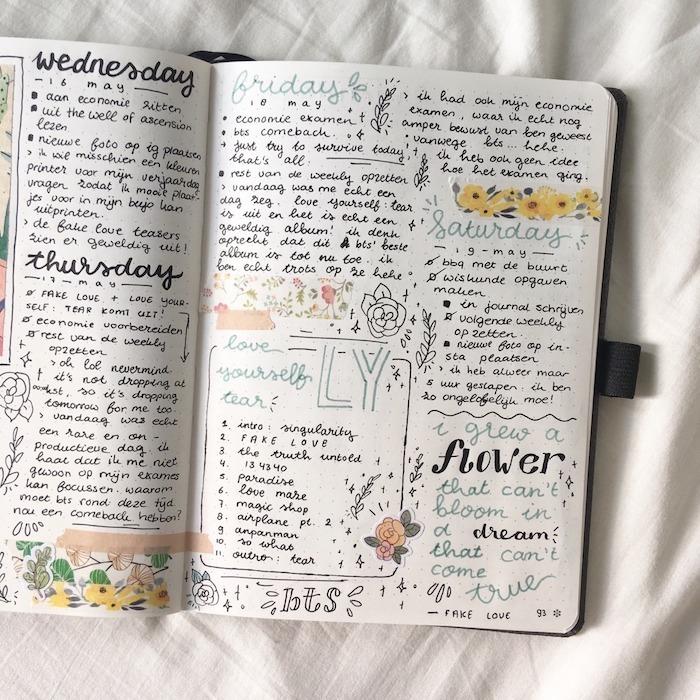 wednesday
- 16 may -
aan economie zitten
uit the well of ascension
lezen
nieuwe foto op ig plaatsen
> ik wil misschien een kleuren
printer voor mijn verjaardag
vragen zodat ik mooie plaat-
jes voor in mijn bujo kan
uitprinten.
> de fake love teasers
zien er geweldig uit!
thursday
- 17 - may -
FAKE LOVE + LOVE YOUR-
SELF: TEAR KOMT UIT!
economie voorbereiden
rest van de weekly
opzetten
> oh lol nevermind.
it's not dropping at
kst, so it's dropping
tomorrow for me too.
> vandaag was echt
een rare en on-
productieve dag. ik
haat dat ik me niet
gewoon op mijn examens
kan focussen. waarom
moet bts rond deze tijd
nou een comeback hebben?
friday
18 may
economie examen
bts comeback.
→ just try to survive today,
that's all.
rest van de weekly opzetten
> vandaag was me echt een
dag zeg. love yourself: tear
is uit en het is echt een
geweldig album! ik denk
oprecht dat dit bts' beste
album is tot nu toe. ik
ben echt trots op ze hehe
love
yourself
tear
LY
1. intro: singularity
2. FAKE LOVE
3. the truth untold
4. 134340
5. paradise
6. love maze
7. magic shop
8. airplane pt. 2
9. anpanman
10. so what
11. outro: tear
bts
> ik had ook mijn economie
examen, waar ik echt nog
amper bewust van ben geweest
vanwege bts... hehe.
ik heb ook geen idee
hoe het examen ging.
saturday
- 19 - may -
bbq met de buurt
wiskunde opgaven
maken
in journal schrijven
volgende weekly
opzetten.
nieuwe foto op in-
sta plaatsen
> ik heb alweer maar
5 uur geslapen. ik ben
zo ongelofelijk moe!
i grew a
flower
that can't
bloom in
a dream
that can't
come
true
- FAKE LOVE
93